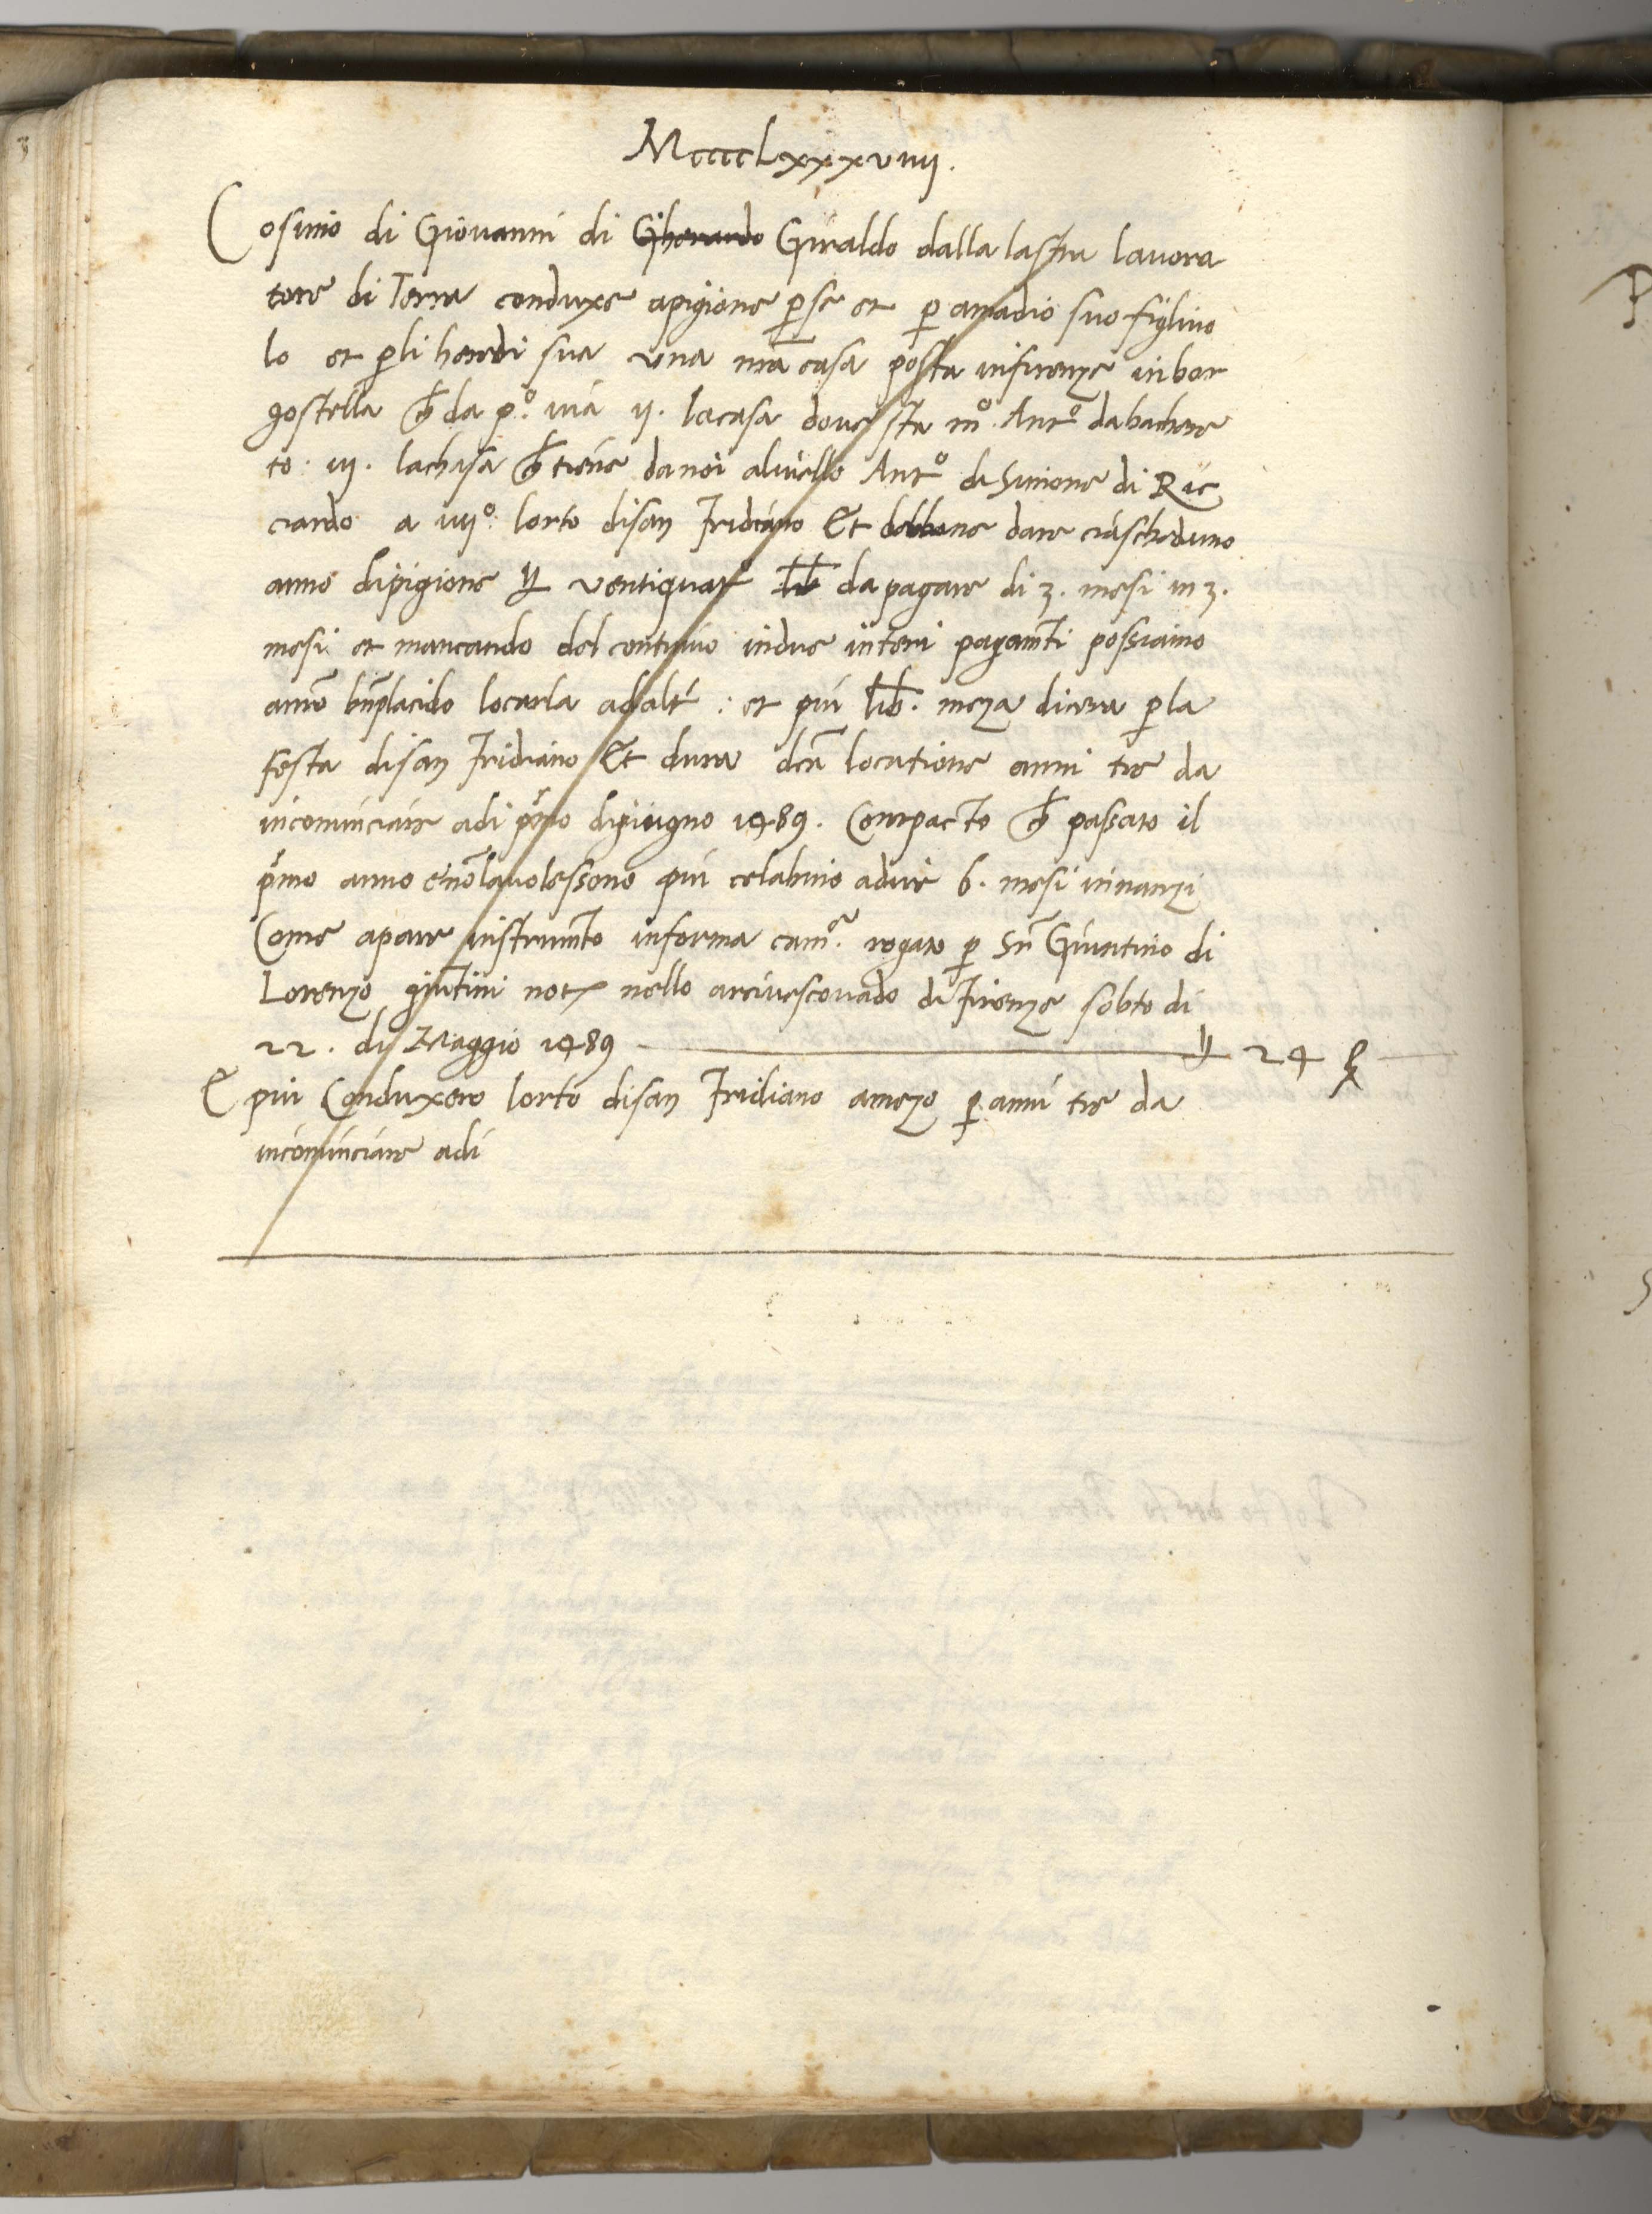 MccccLxxxviiij.
Cosimo di Giovanni di Gherardo Giraldo dalla lastra lavora
tore di Terra conduxe apigione p se et p amadio suo figliuo
lo et p li heredi sua una nra casa posta infirenze inbor
gostella ch da p.º via ij. lacasa dove sta mº. Antº dabachere
to. iij. lachasa ch tiene da noi alivello Antº di Simone di Ric
ciardo a iiijº. lorto disan Fridiano Et debbone dare ciascheduno
anno dipigione ventiquatº da pagare di 3. mesi in 3.
mesi et mancando del continuo indue interi pagamti possiamo
anro bnplacido locarla ad altri : et piu lib. meza dicera p la
festa disan Fridiano Et dura dcta locatione anni tre da
incominciare adi pmo digiugno 1489. Compacto ch passato il
pmo anno e no lavolessono piu celabino adire 6. mesi innanzi
Come apare instrumto informa cam. rogato p Sr Giuntino di
Lorenzo giuntini not nello arcivescovado di Firenze sobto di
22. di Maggio 1489 24
E piu Conduxero lorto disan Fridiano amezo p anni tre da
incominciare adi